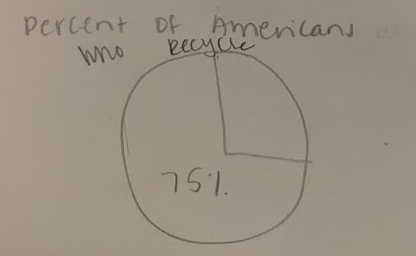 Percent Of Americans
who Recycle
75%